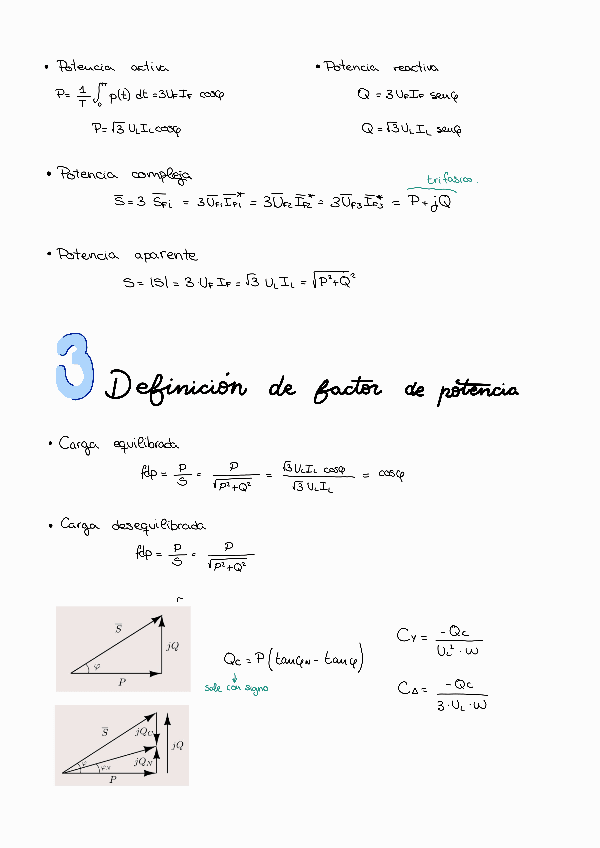 • Potencia activa
P = 1/T ∫₀ᵀ p(t) dt = 3U_F I_F cosφ
P = √3 U_L I_L cosφ
• Potencia reactiva
Q = 3 U_F I_F senφ
Q = √3 U_L I_L senφ
• Potencia compleja
trifásico.
S̅ = 3 S̅_F1 = 3U̅_F1 I̅_F1* = 3U̅_F2 I̅_F2* = 3U̅_F3 I̅_F3* = P + jQ
• Potencia aparente
S = |S| = 3·U_F I_F = √3 U_L I_L = √(P²+Q²)
3 Definición de factor de potencia
• Carga equilibrada
fdp = P/S = P/√(P²+Q²) = √3 U_L I_L cosφ / √3 U_L I_L = cosφ
• Carga desequilibrada
fdp = P/S = P/√(P²+Q²)
S̅
jQ
φ
P
Q_C = P(tanφ_N − tanφ)
sale con signo
C_Y = −Q_C / U_L²·ω
C_Δ = −Q_C / 3·U_L·ω
S̅
jQ_C
jQ
jQ_N
φ
φ_N
P